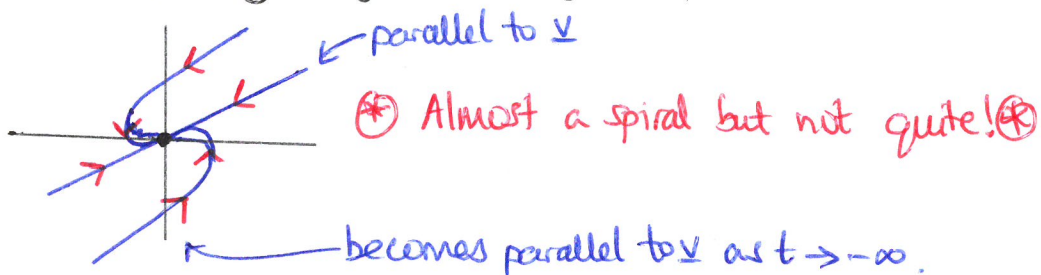 parallel to v
⊛ Almost a spiral but not quite! ⊛
becomes parallel to v as t → -∞.